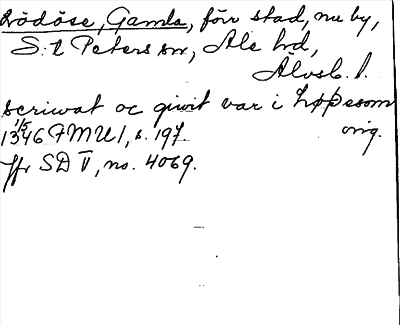 Lödöse, Gamla, förr stad, nu by,
S:t Peters sn, Ale hd,
Älvsb. l.
scriwat oc giwit var i Liodhosom
1/5
1346 FMU 1, s. 197. orig.
Jfr SD V, no. 4069.